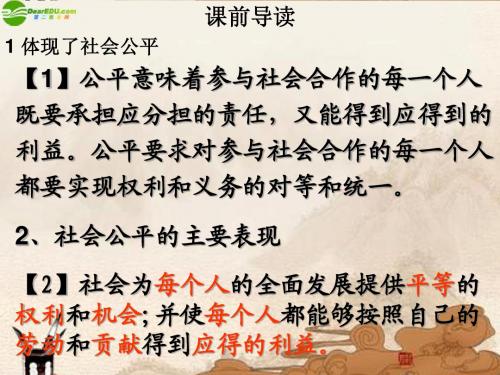 DearEDU.com
第二教育网
课前导读
1 体现了社会公平
【1】公平意味着参与社会合作的每一个人
既要承担应分担的责任，又能得到应得到的
利益。公平要求对参与社会合作的每一个人
都要实现权利和义务的对等和统一。
2、社会公平的主要表现
【2】社会为每个人的全面发展提供平等的
权利和机会；并使每个人都能够按照自己的
劳动和贡献得到应得的利益。